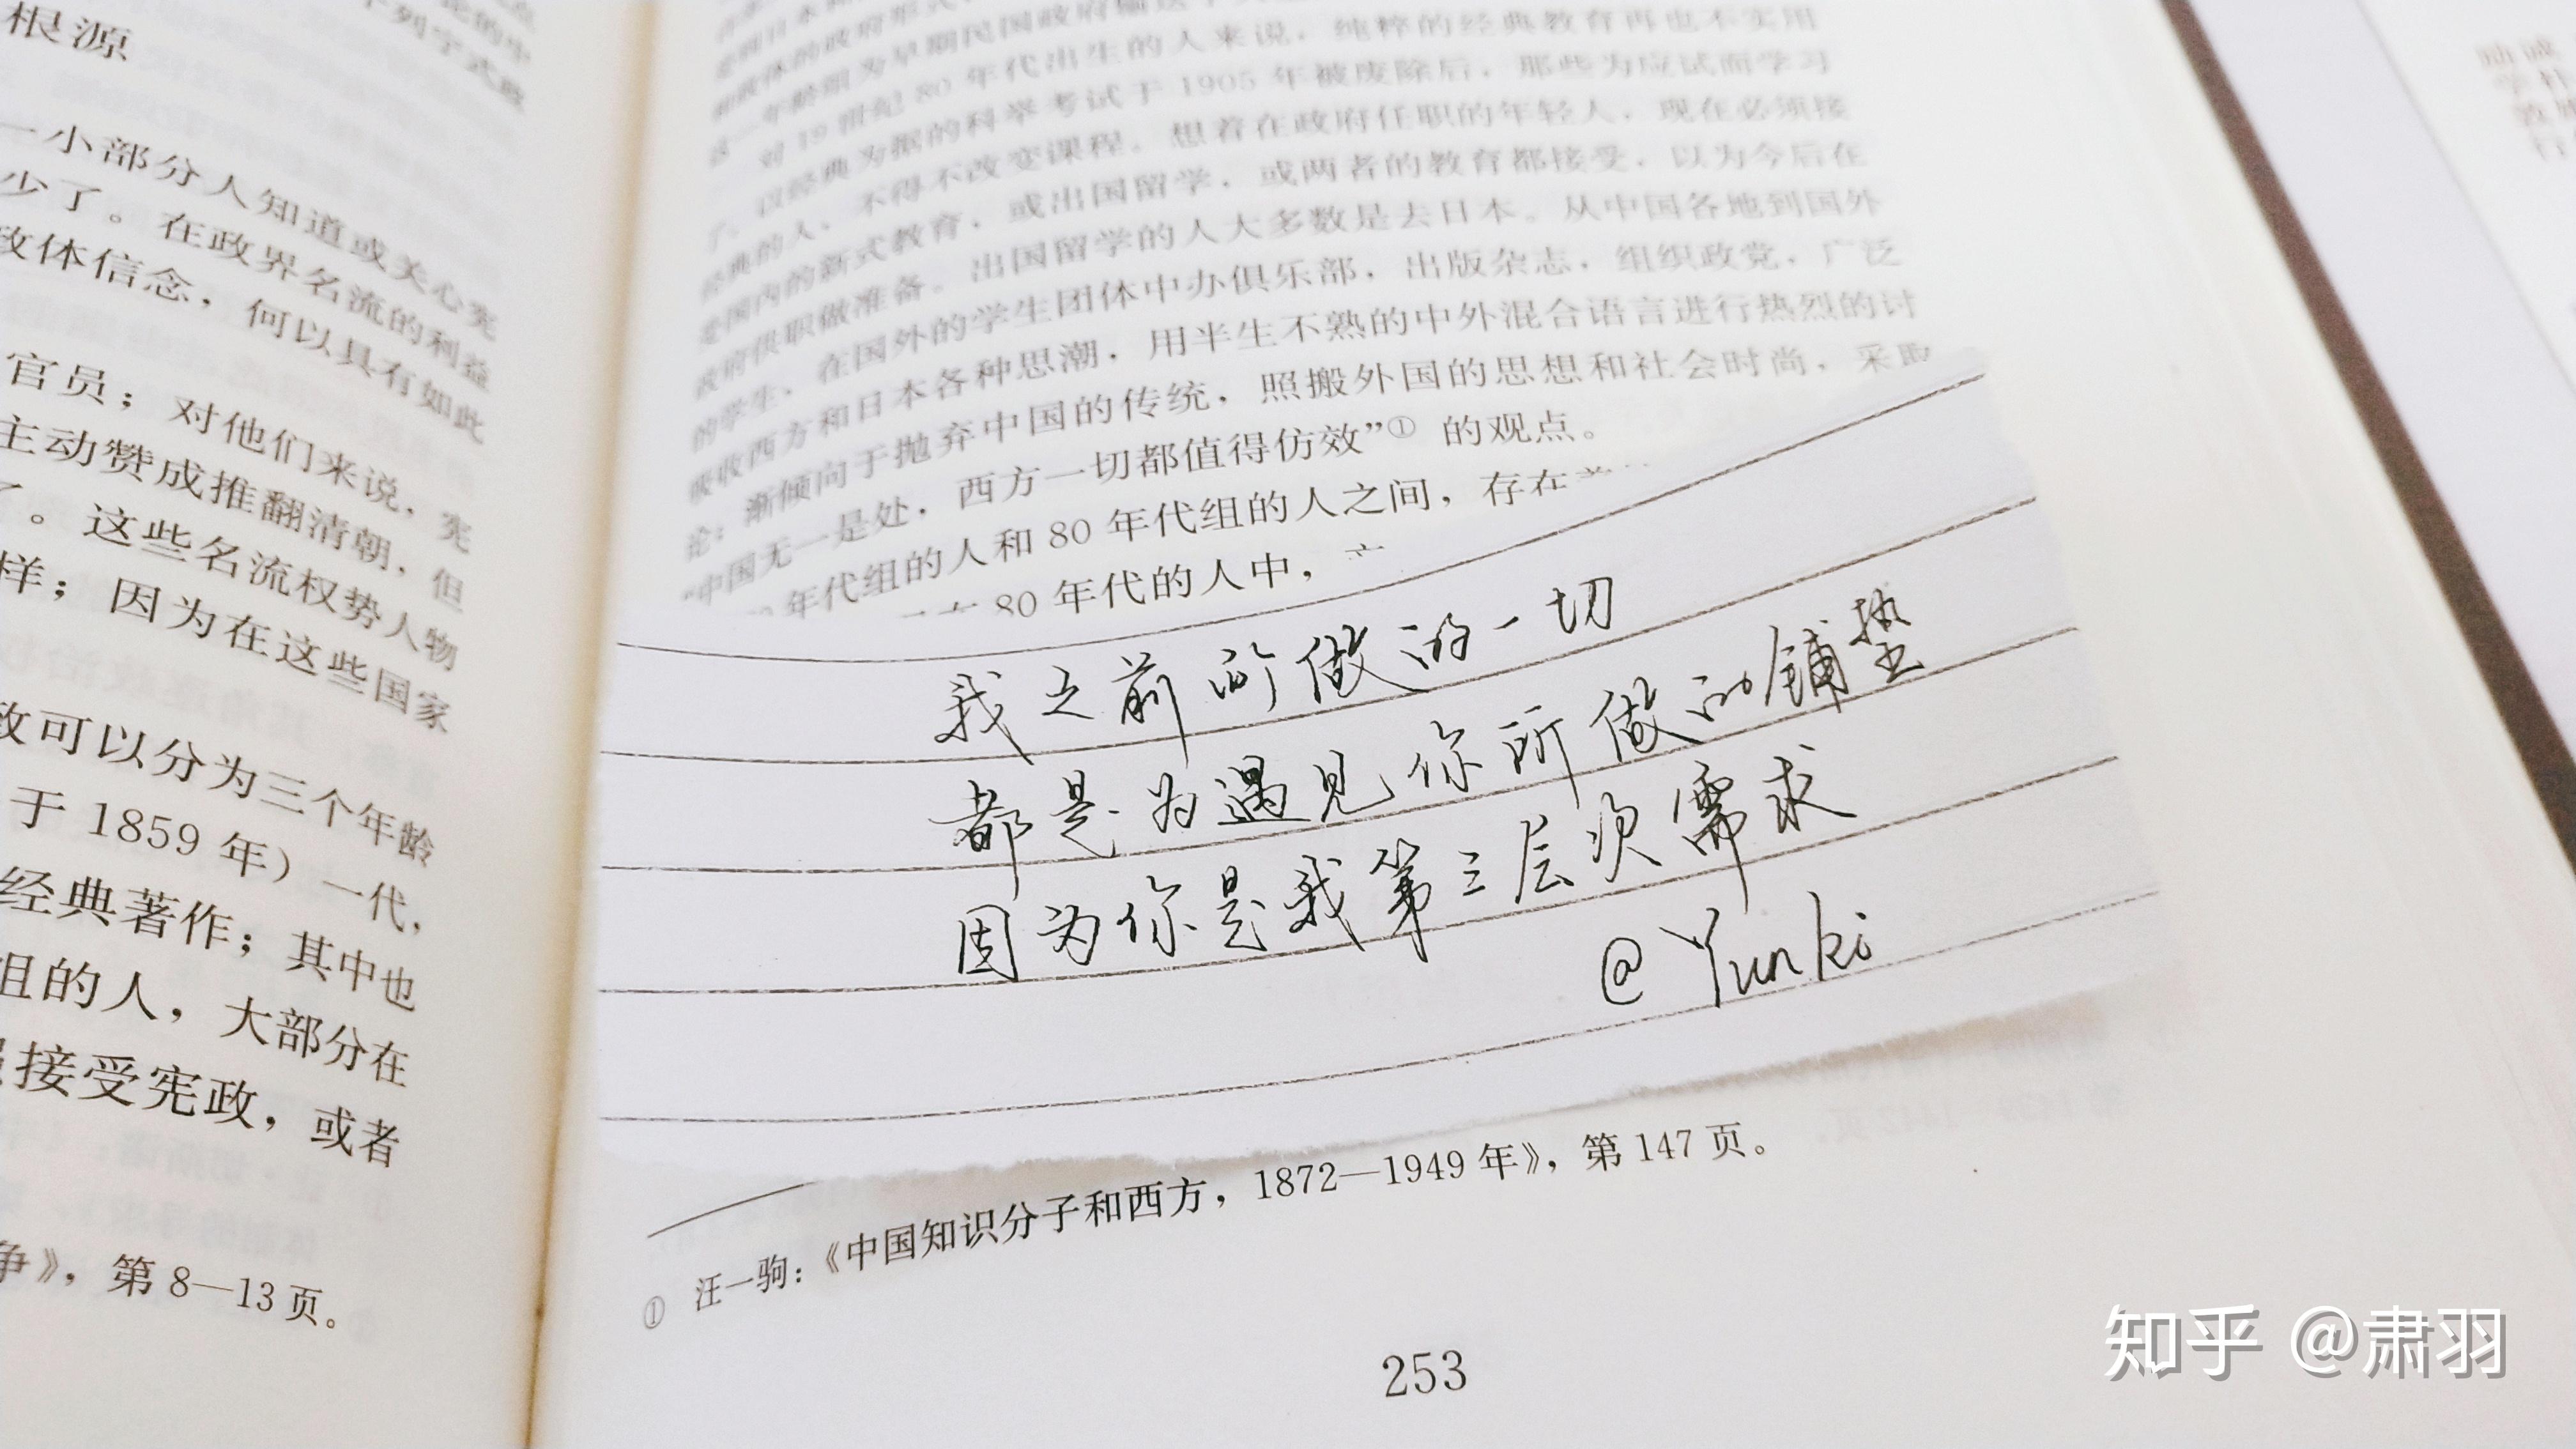 根源
列宁式政
一小部分人知道或关心宪
少了。在政界名流的利益
政体信念，何以具有如此
官员；对他们来说，宪
主动赞成推翻清朝，但
了。这些名流权势人物
样；因为在这些国家
可以分为三个年龄
于1859年）一代，
经典著作；其中也
组的人，大部分在
接受宪政，或者
争》，第8—13页。
这一年龄组为早期民国政府输送了
对19世纪80年代出生的人来说，纯粹的经典教育再也不实用
了。以经典为据的科举考试于1905年被废除后，那些为应试而学习
经典的人，不得不改变课程。想着在政府任职的年轻人，现在必须接
受国内的新式教育，或出国留学，或两者的教育都接受，以为今后在
政府供职做准备。出国留学的人大多数是去日本。从中国各地到国外
的学生，在国外的学生团体中办俱乐部，出版杂志，组织政党，广泛
吸收西方和日本各种思潮，用半生不熟的中外混合语言进行热烈的讨
论；渐倾向于抛弃中国的传统，照搬外国的思想和社会时尚，采取
“中国无一是处，西方一切都值得仿效”① 的观点。
年代组的人和80年代组的人之间，存在
80年代的人中，
我之前所做的一切
都是为遇见你所做的铺垫
因为你是我第三层次需求
@Yunki
① 汪一驹：《中国知识分子和西方，1872—1949年》，第147页。
253
知乎 @肃羽